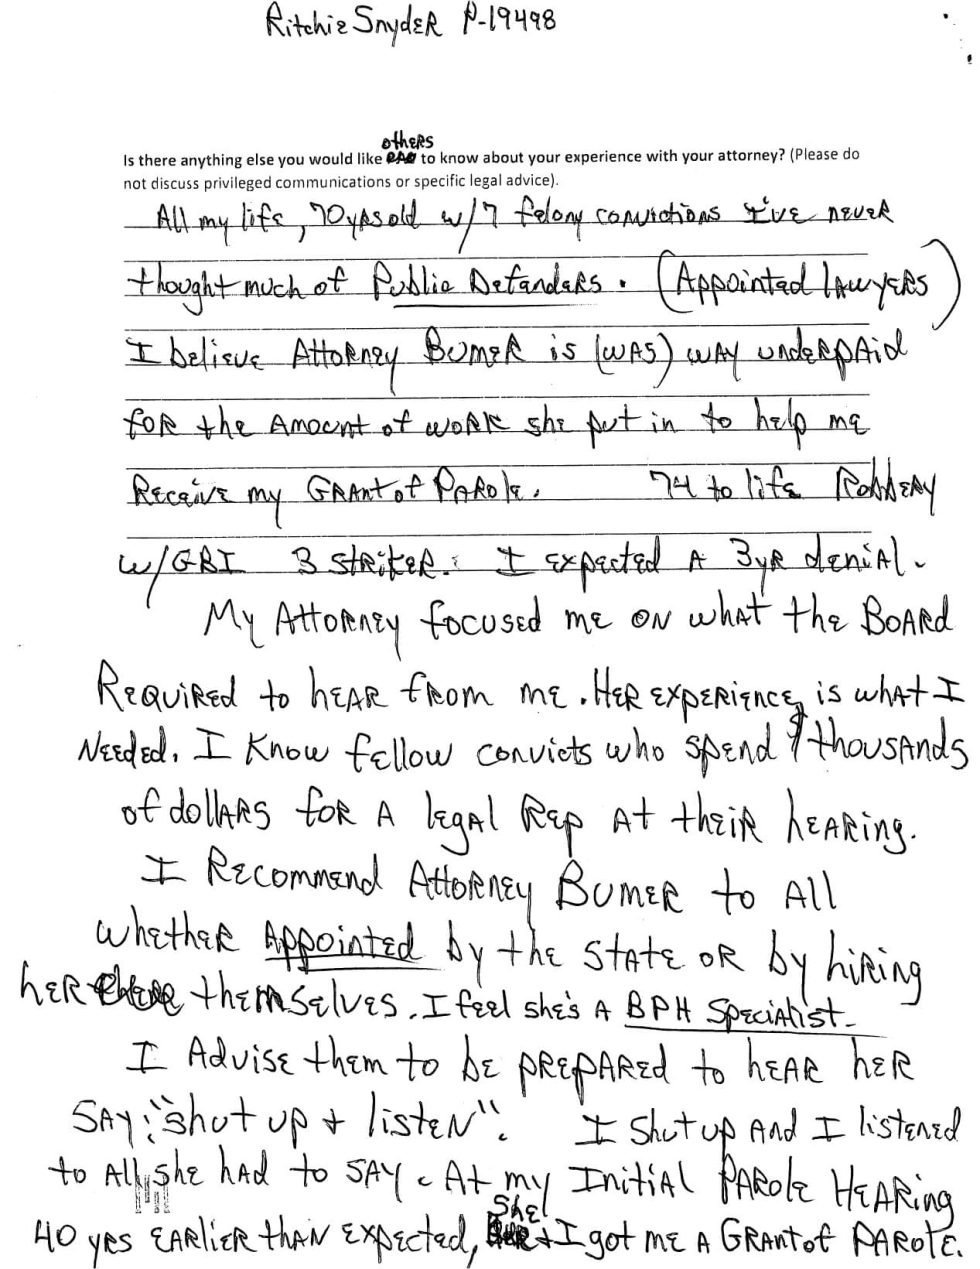 Ritchie Snyder P-19498
others
Is there anything else you would like to know about your experience with your attorney? (Please do
not discuss privileged communications or specific legal advice).
All my life, 70yrs old w/7 felony convictions I've never
thought much of Public Defenders. (Appointed lawyers)
I believe Attorney Bumer is (was) way underpaid
for the amount of work she put in to help me
Receive my Grant of Parole. 74 to life Robbery
w/GBI 3 striker. I expected a 3yr denial.
My Attorney focused me on what the Board
Required to hear from me. Her experience is what I
Needed. I Know fellow convicts who spend $ thousands
of dollars for a legal Rep at their hearing.
I Recommend Attorney Bumer to all
whether Appointed by the State or by hiring
her themselves. I feel she's a BPH Specialist.
I Advise them to be prepared to hear her
say: "shut up + listen". I Shut up and I listened
to all she had to say. At my Initial Parole Hearing
She
40 yrs earlier than expected, + I got me a Grant of Parole.